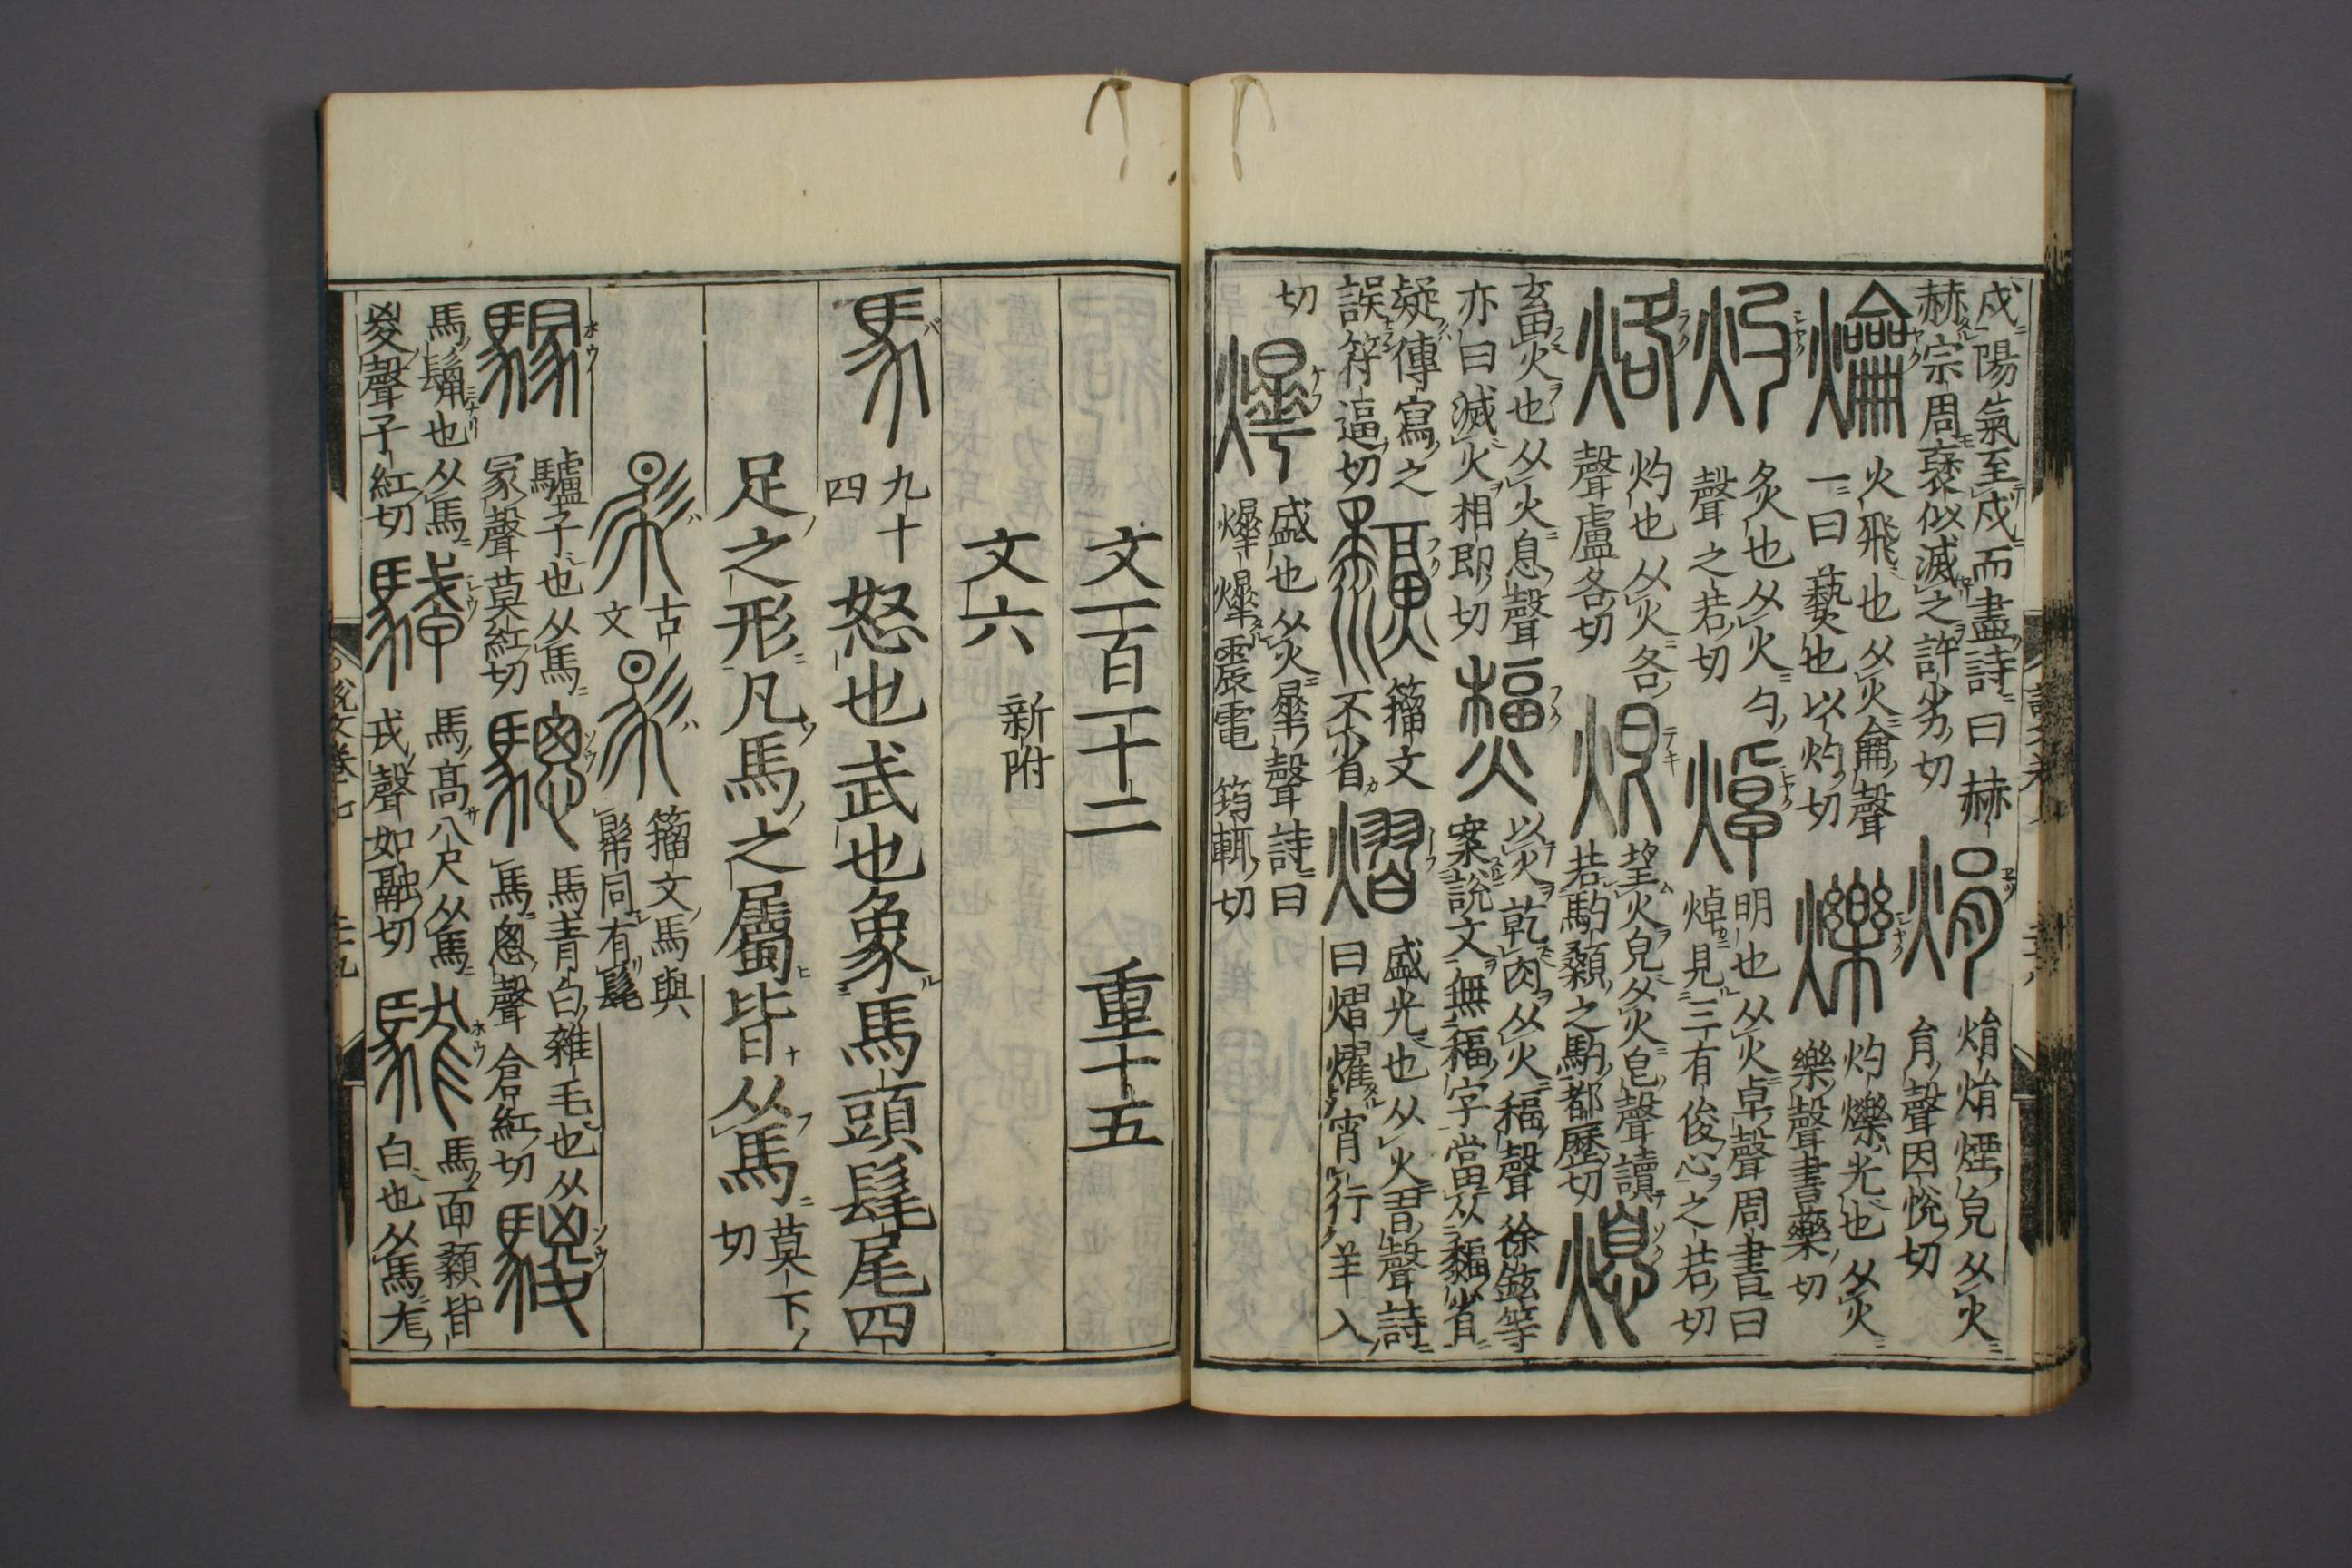 戌陽氣至戌而盡詩曰赫
赫宗周褒似滅之許劣切
焆
焆焆煙皃从火
肙聲因悅切
爚
火飛也从火龠聲
一曰爇也以灼切
爍
灼爍光也从火
樂聲書藥切
灼
炙也从火勺
聲之若切
焯
明也从火卓聲周書曰
焯見三有俊心之若切
烙
灼也从火各
聲盧各切
望火皃从火皀聲讀
若馰顙之馰都歷切
熄
畜火也从火息聲
亦曰滅火相即切
以火乾肉从火稫聲徐鉉等
案說文無稫字當从省
疑傳寫之
誤符逼切
籀文
不省
熠
盛光也从火習聲詩
曰熠燿宵行羊入
切
爗
盛也从火曅聲詩曰
爗爗震電 筠輒切
文一百一十二 重十五
文六 新附
馬
九十
四
怒也武也象馬頭髦尾四
足之形凡馬之屬皆从馬
莫下
切
古
文
籀文馬與
𢒠同有髦
驢子也从馬
冡聲莫紅切
驄
馬青白雜毛也从
馬悤聲 倉紅切
騣
馬鬛也从馬
㚇聲子紅切
馬高八尺从馬
戎聲如融切
駹
馬面顙皆
白也从馬尨
說文卷十七